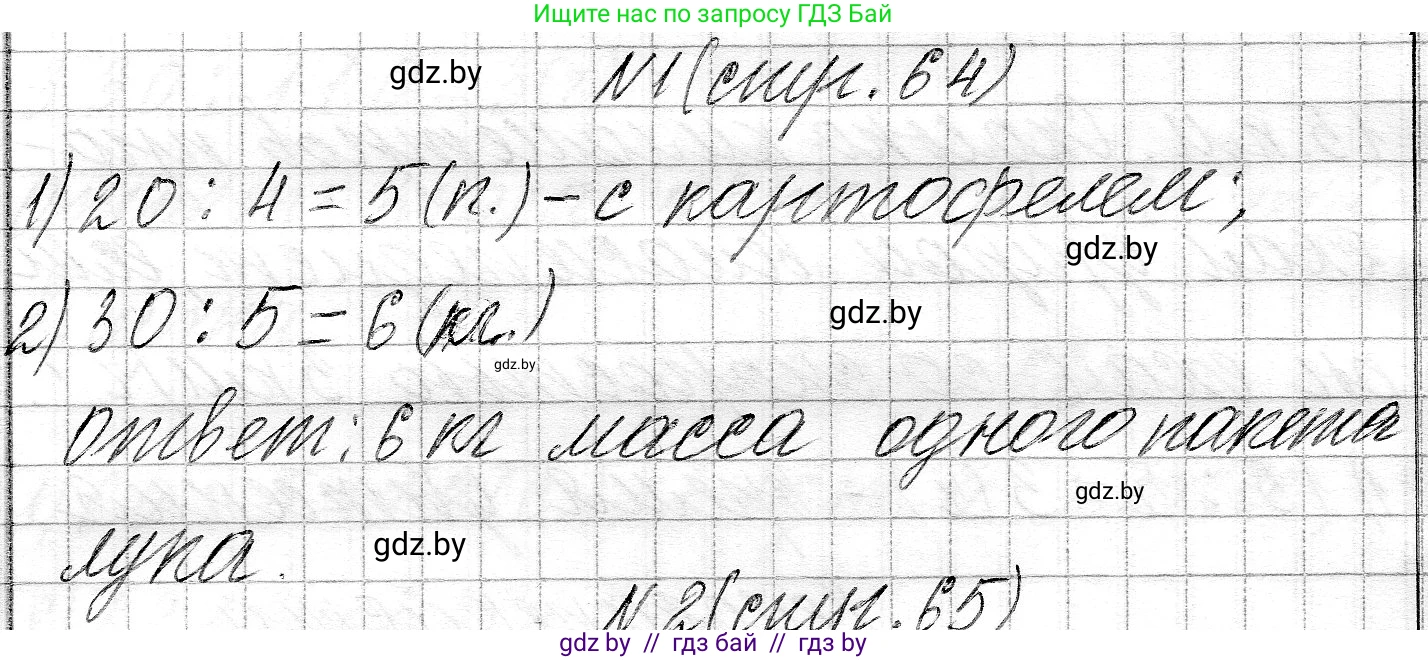 Ищите нас по запросу ГДЗ Бай
gdz.by
№1(стр. 64)
1) 20 : 4 = 5 (п.) – с картофелем;
gdz.by
2) 30 : 5 = 6 (кг.)
gdz.by
gdz.by
ответ: 6 кг масса одного пакета
gdz.by
лука.
gdz.by
№2(стр. 65)
gdz.by // гдз бай // гдз by